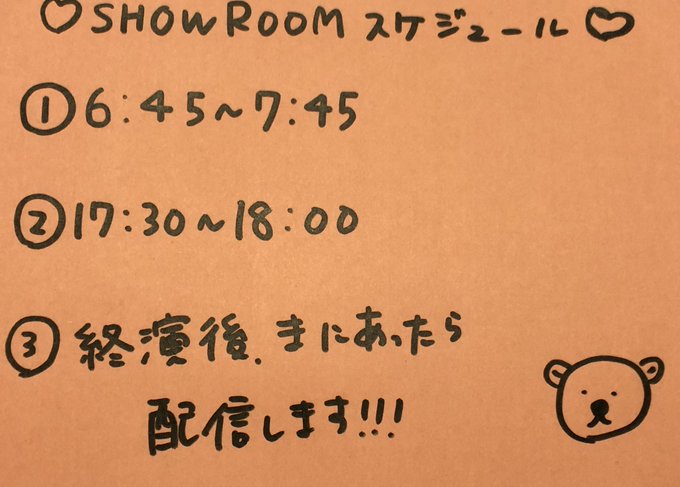 ♡SHOWROOM スケジュール♡
①6:45~7:45
②17:30~18:00
③終演後、まにあったら
配信します!!!